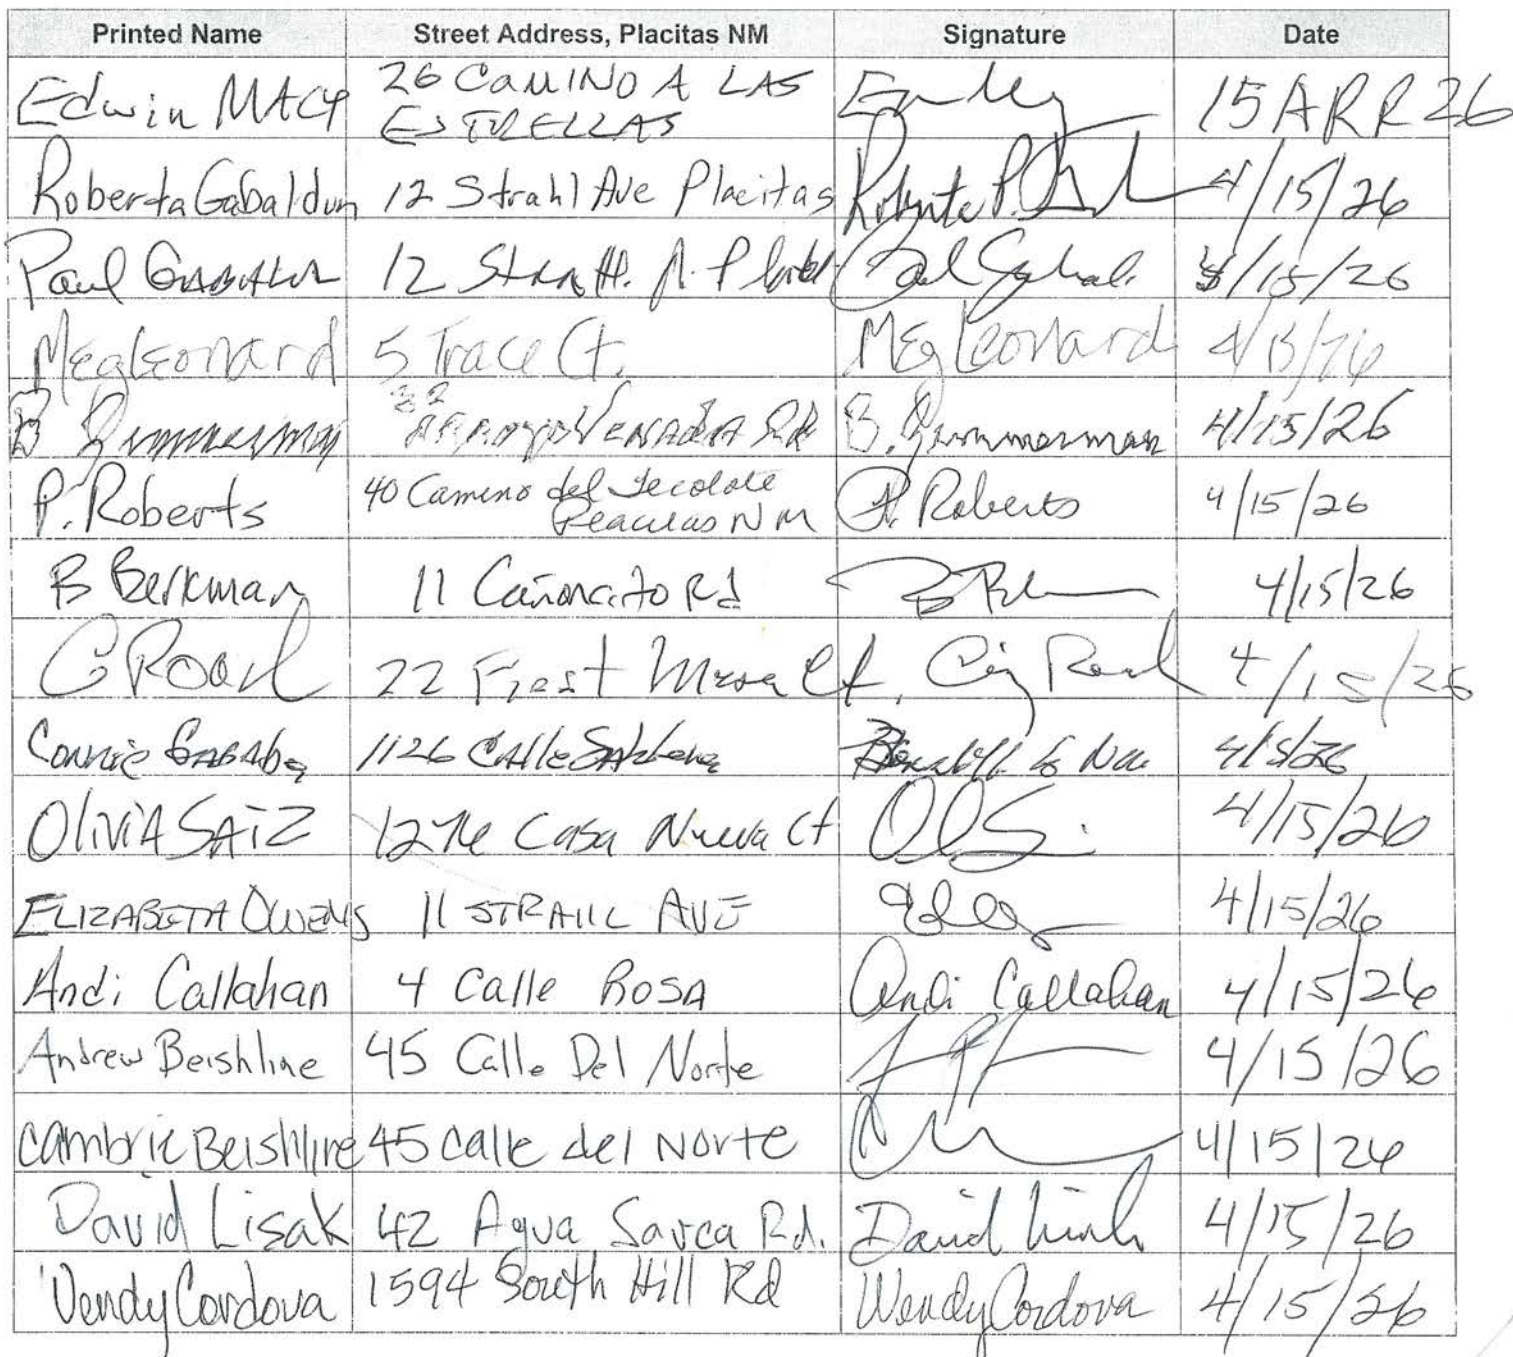 Printed Name Street Address, Placitas NM Signature Date
Edwin MACY 26 CAMINO A LAS ESTRELLAS 15 APR 26
Roberta Gabaldon 12 Strahl Ave Placitas Roberta P. 4/15/26
Paul 12 Paul /15/26
Meg Leonard 5 Trace Ct. Meg Leonard 4/15/26
B Zimmerman 32 ARROYO VENADA RD B. Zimmerman 4/15/26
P. Roberts 40 Camino del Tecolote Placitas NM P. Roberts 4/15/26
B Berkman 11 Cañoncito Rd 4/15/26
C Road 22 First Mesa Ct. 4/15/26
Connie 1126 Calle 4/15/26
OLIVIA SAIZ Casa Nueva Ct 4/15/26
ELIZABETH OWENS 11 STRAHL AVE 4/15/26
Andi Callahan 4 Calle ROSA Andi Callahan 4/15/26
Andrew Beishline 45 Calle Del Norte 4/15/26
Cambrie Beishline 45 calle del Norte 4/15/26
David Lisak 42 Agua Sarca Rd. David Lisak 4/15/26
Wendy Cordova 1594 South Hill Rd Wendy Cordova 4/15/26